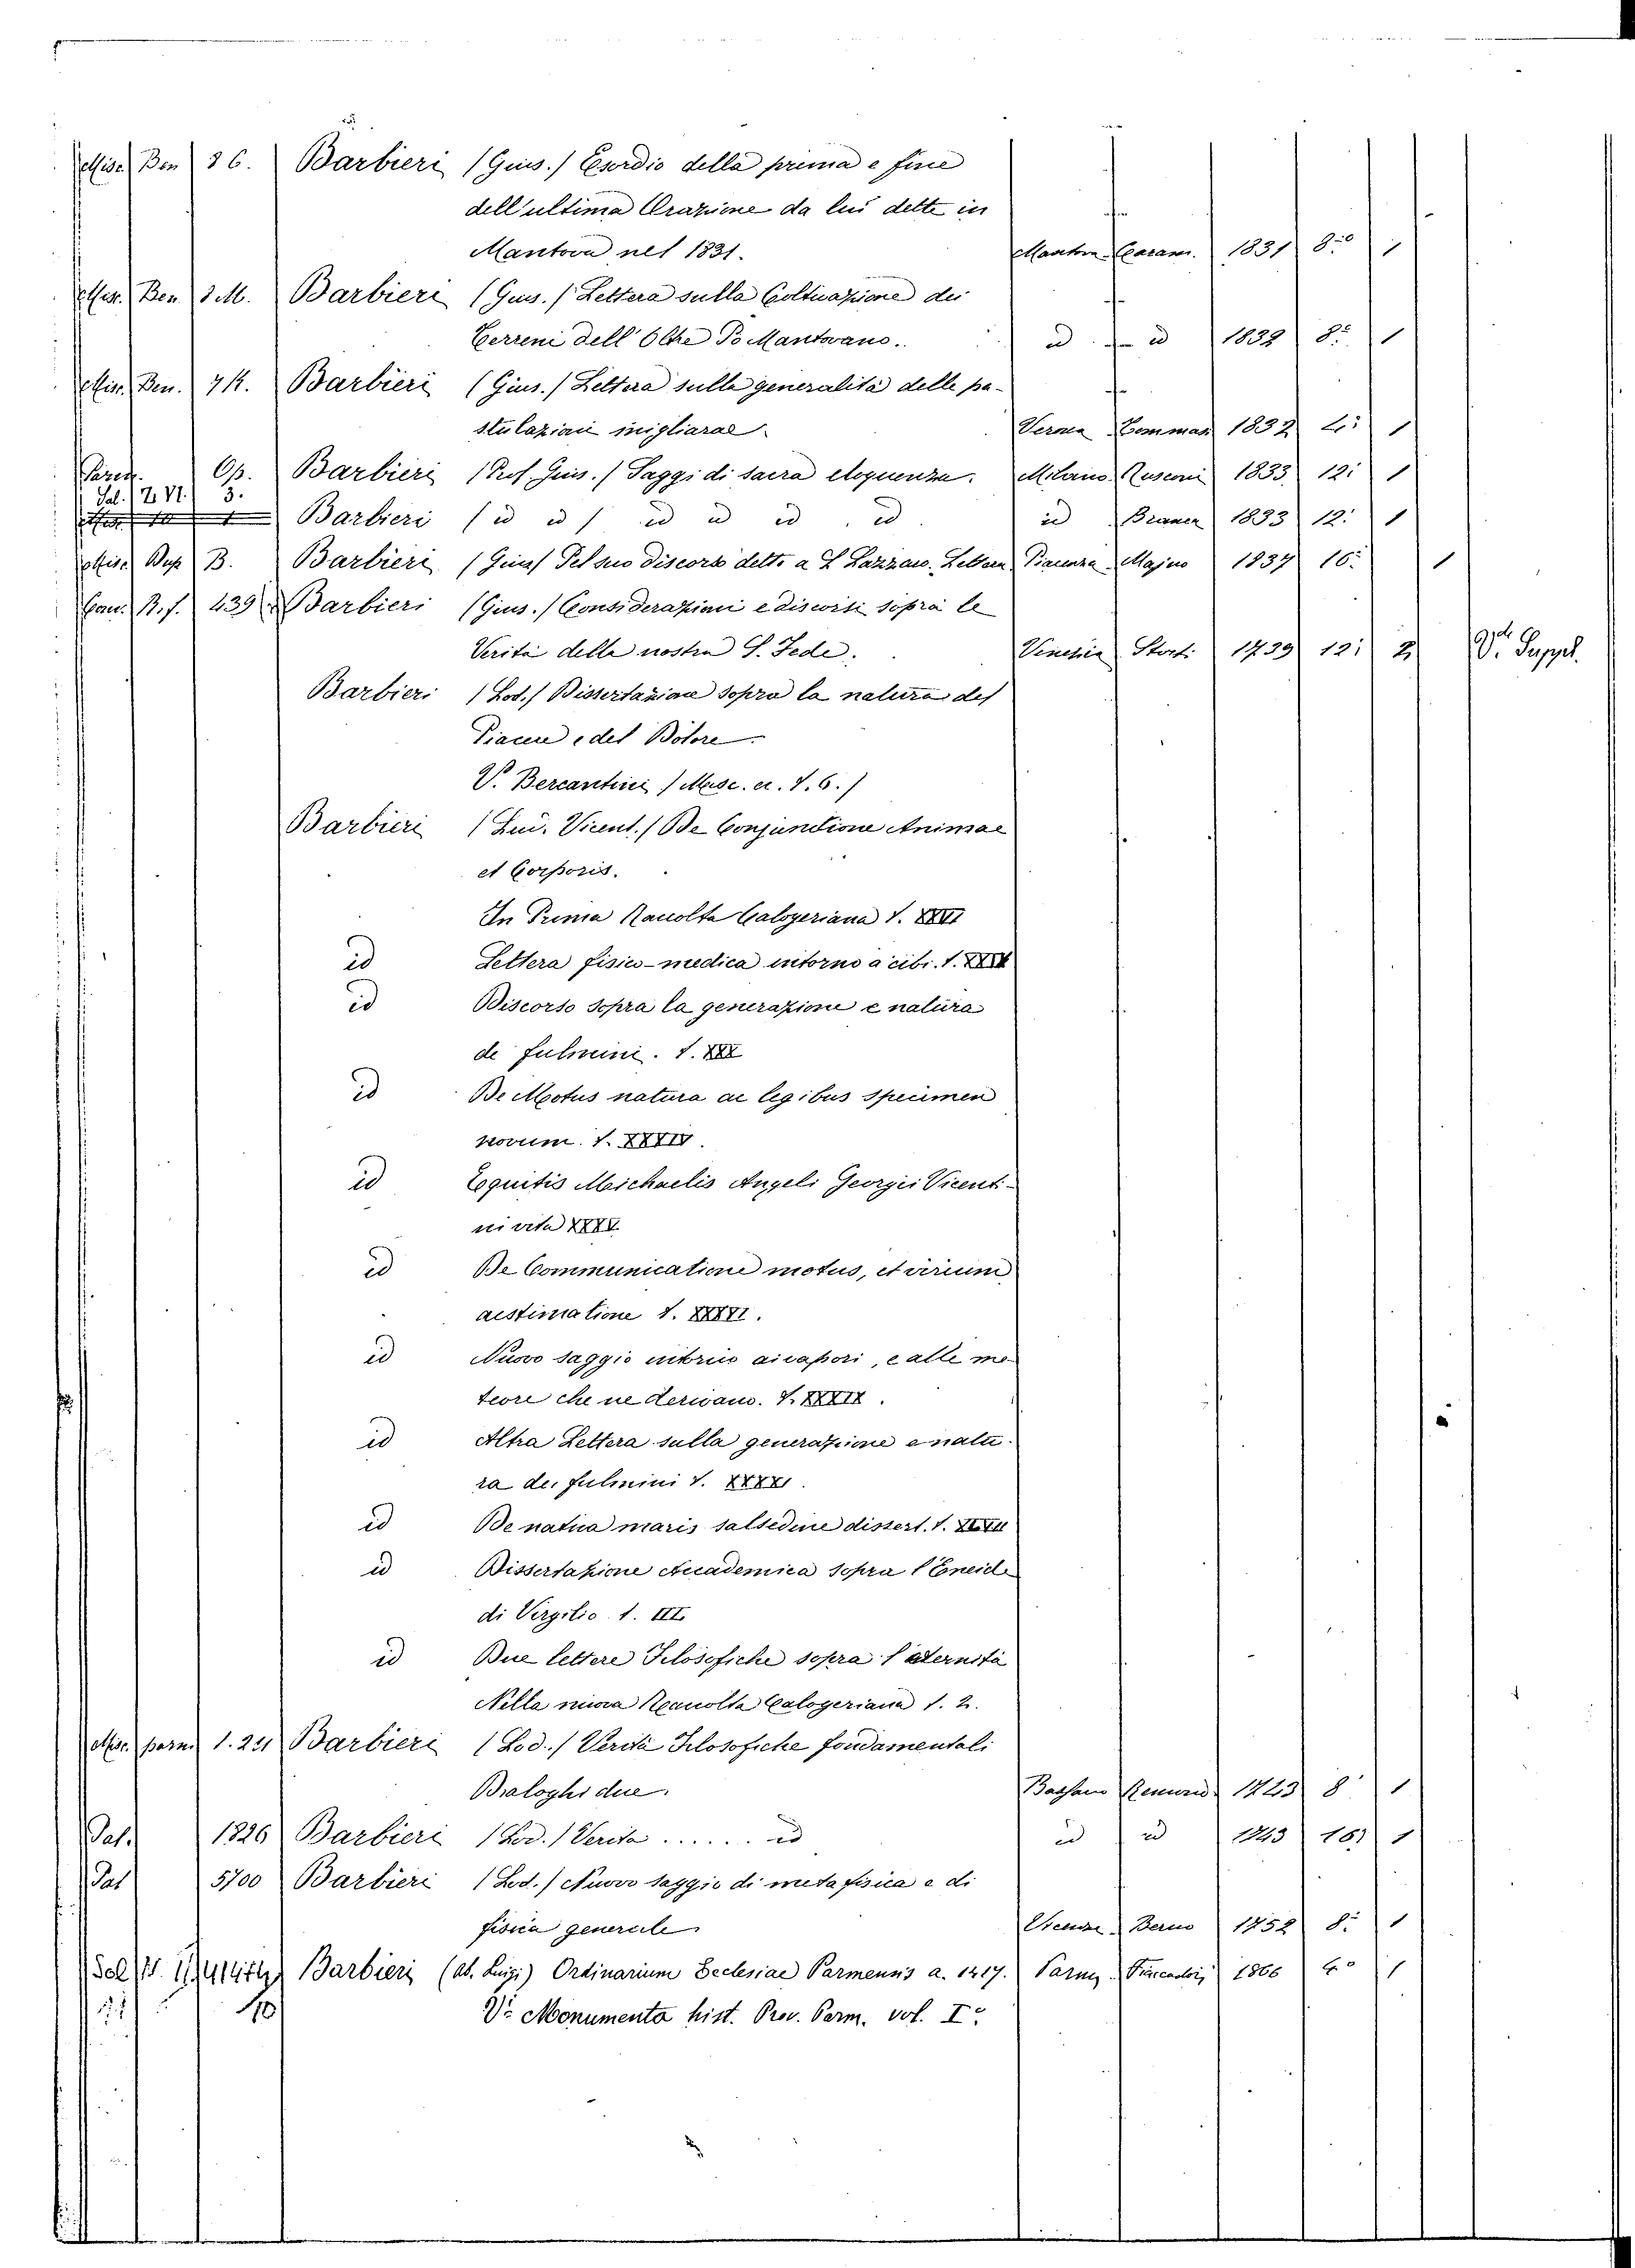 Misc. Ben 36. Barbieri (Gius.) Esordio della prima e fine
dell'ultima Orazione da lui dette in
Mantova nel 1831. Mantova Caranen. 1831 8.° 1
Misc. Ben. 3 M. Barbieri (Gius.) Lettera sulla Coltivazione dei
Terreni dell'Oltre Po Mantovano. id id 1839 8.° 1
Misc. Ben. 7 K. Barbieri (Gius.) Lettera sulla generalità delle pa-
stulazioni migliarae Verona Tommas 1832 4.° 1
Op. Barbieri (Prof. Gius.) Saggi di sacra eloquenza. Milano Rusconi 1833 12.° 1
Sal. Z. VI. 3.
Barbieri (id id) id id id id id Braner 1833 12.° 1
Misc. B. Barbieri (Gius) Pel suo discorso detto a S. Lazzaro. Lettera Piacenza Majno 1837 16.° 1
R. f. 439 Barbieri (Gius.) Considerazioni e discorsi sopra le
Verità della nostra S. Fede. Venezia Storti 1739 12.° 2 V. Suppl.
Barbieri (Lod.) Dissertazione sopra la natura del
Piacere e del Dolore.
V. Bercantini (Misc. er. t. 6.)
Barbieri (Lud. Vicent.) De Conjunctione Animae
et Corporis.
In Prima Raccolta Calogeriana t. XXVI
id Lettera fisico-medica intorno a cibi. t. XXIX
id Discorso sopra la generazione e natura
de fulmini. t. XXX
id De Motus natura ac legibus specimen
novum. t. XXXIV.
id Equitis Michaelis Angeli Georgii Vicenti-
ni vita XXXV.
id De Communicatione motus, et virium
aestimatione t. XXXVI.
id Nuovo saggio intorno ai vapori, e alle me
teore che ne derivano. t. XXXIX.
id Altra Lettera sulla generazione e natu-
ra de fulmini t. XXXXI.
id De natura maris salsedine dissert. t. XLVII
id Dissertazione Accademica sopra l'Eneide
di Virgilio t. III.
id Due lettere Filosofiche sopra l'eternità
Nella nuova Raccolta Calogeriana t. 2.
Misc. parm. 1. 24 Barbieri (Lod.) Verità Filosofiche fondamentali
Dialoghi due. Bassano Remond. 1743 8 1
Pal. 1826 Barbieri (Lod.) Verità ...... id id id 1743 16.° 1
Pal 5700 Barbieri (Lod.) Nuovo saggio di metafisica e di
fisica generale Vicenza Berno 1752 8.° 1
Sal Barbieri (ab. Luigi) Ordinarium Ecclesiae Parmensis a. 1417. Parma. Fiaccadori 1866 4.° 1
V.i Monumenta hist. Prov. Parm. vol. I.°